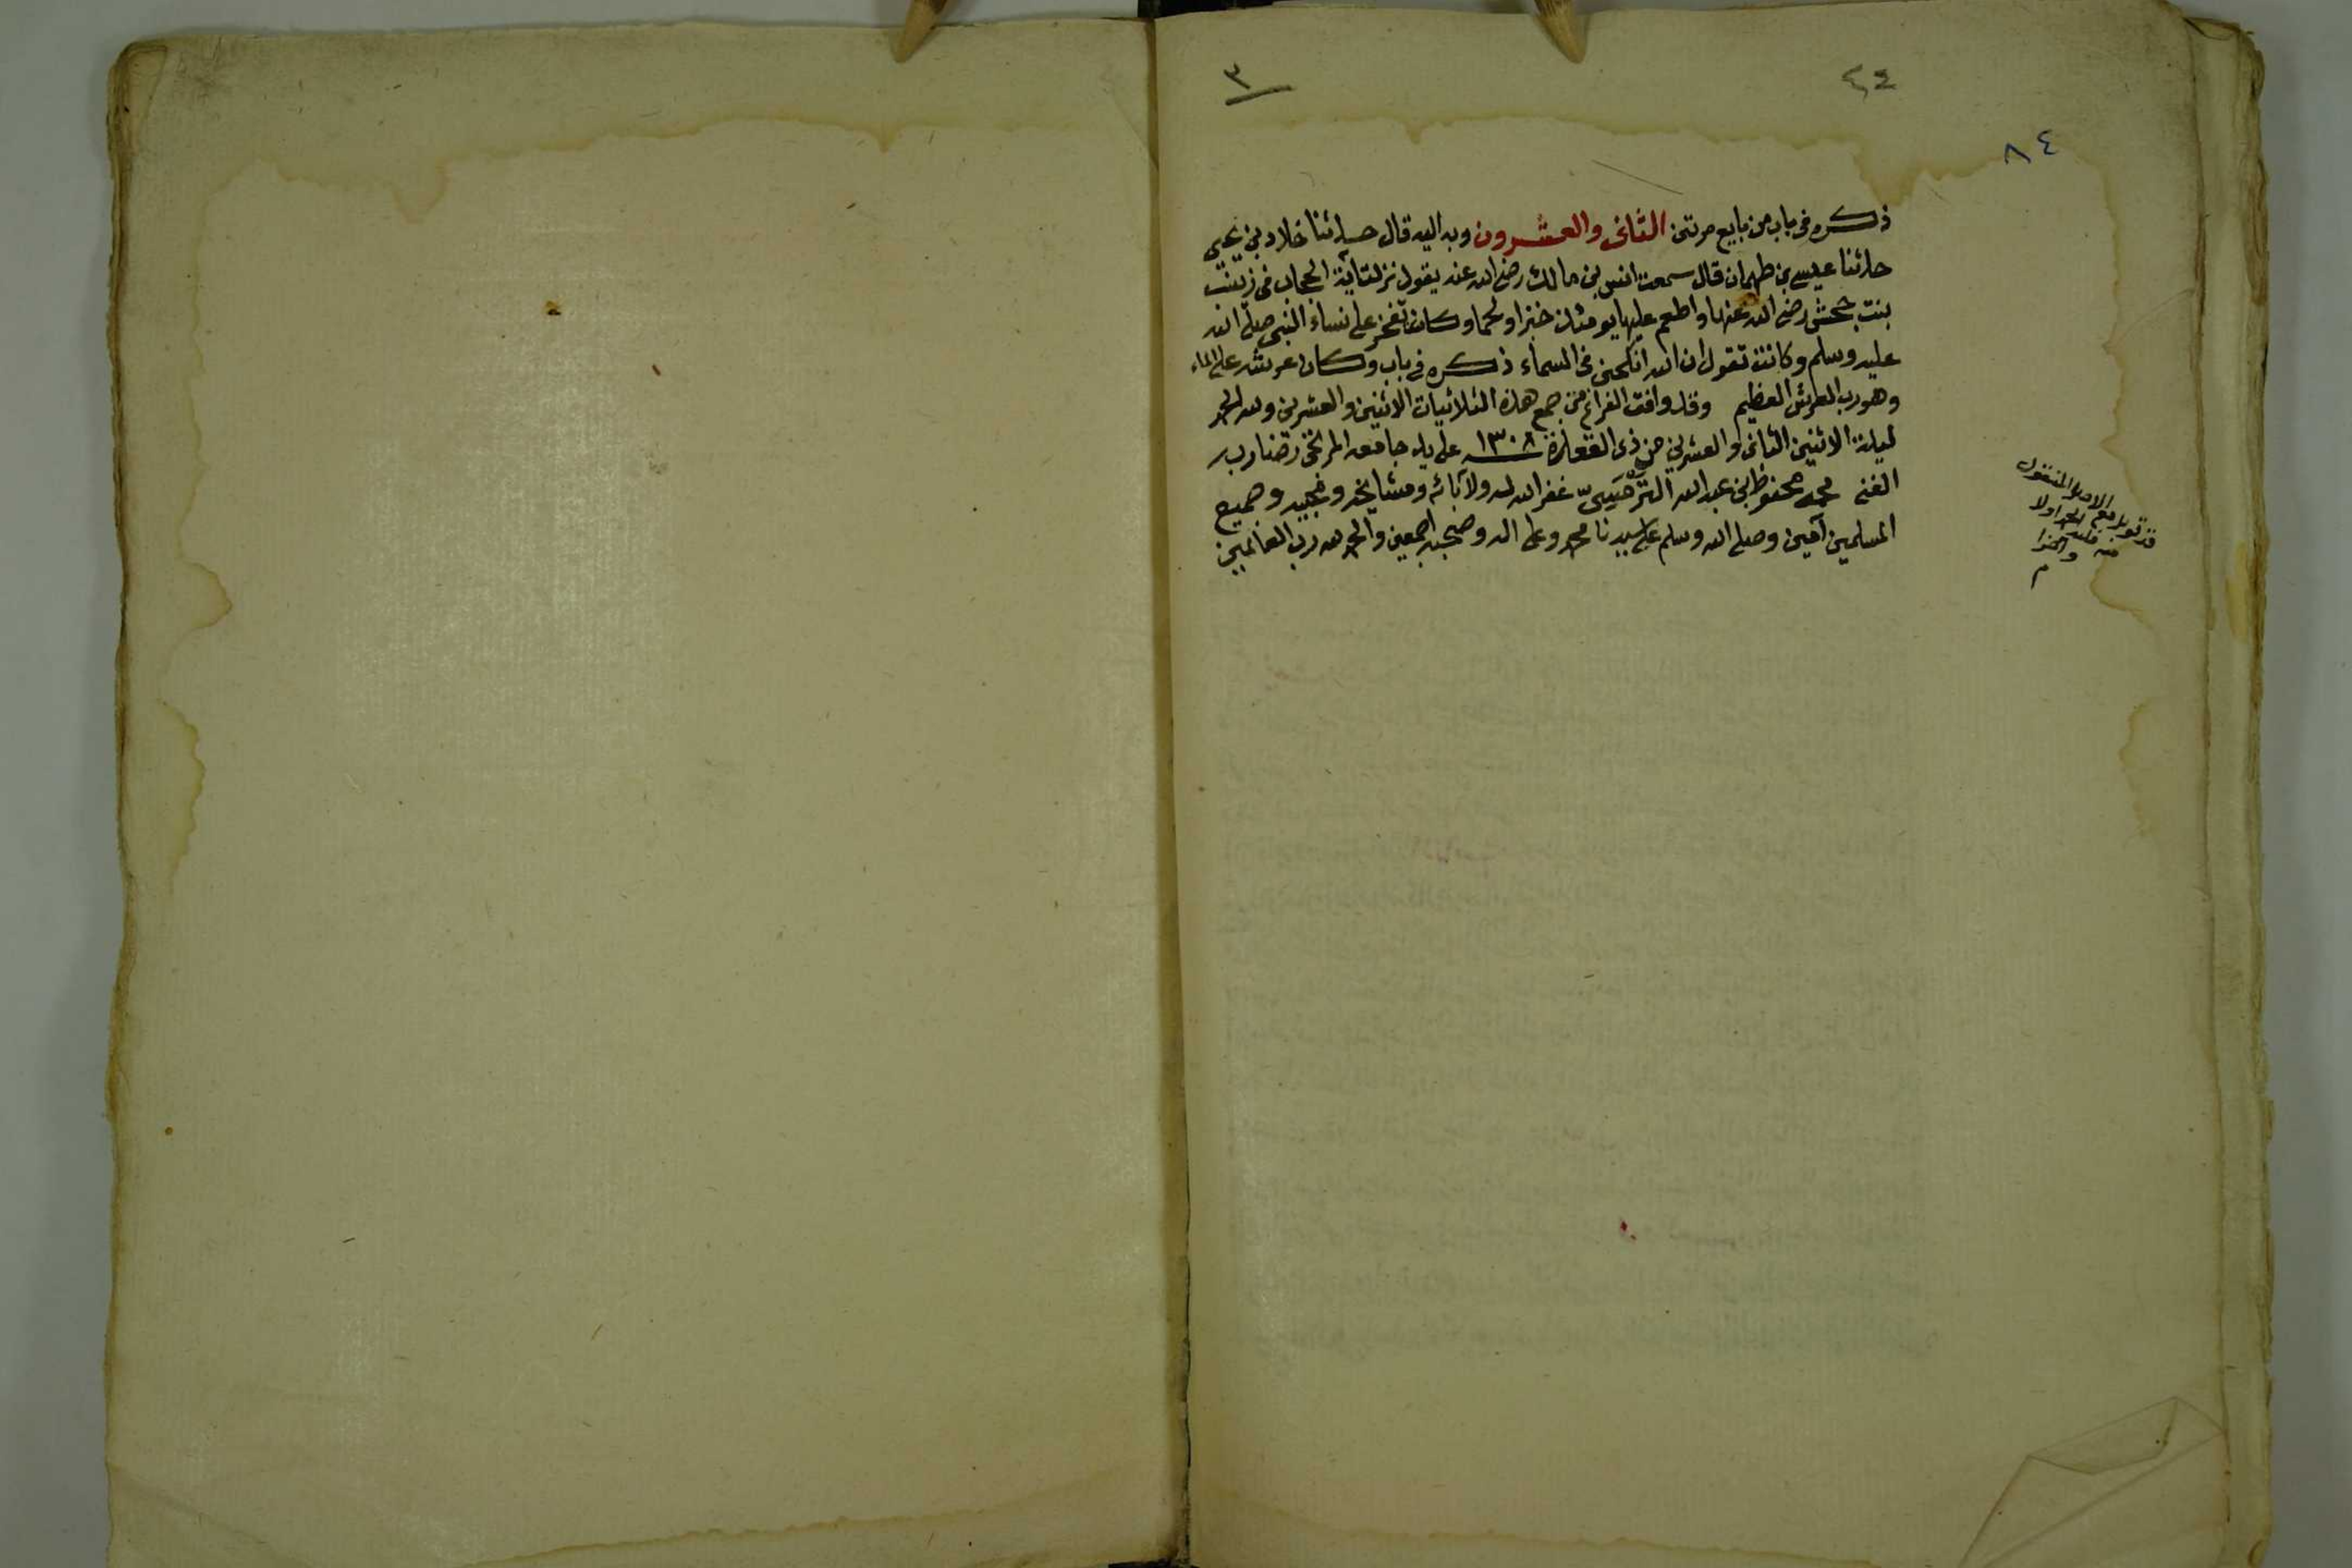 ٣
٤٤
٨٤
ذكره فى باب من بايع مرتين الثانى والعشرون وبه اليه قال حدثنا خلاد بن يحيى
حدثنا عيسى بن طهمان قال سمعت انس بن مالك رضى الله عنه يقول نزلت آية الحجاب فى زينب
بنت جحش رضى الله عنها واطعم عليها يومئذ خبزا ولحما وكانت تفخر على نساء النبى صلى الله
عليه وسلم وكانت تقول ان الله انكحنى فى السماء ذكره فى باب وكان عرشه على الماء
وهو رب العرش العظيم وقد وافق الفراغ من جمع هذه الثلاثيات الاثنين والعشرين ولله الحمد
ليلة الاثنين الثانى والعشرين من ذى القعدة ١٣٠٨ على يد جامعه المرتجى رضا ربه
الغنى محمد محفوظ بن عبد الله الترمسى غفر الله له ولآبائه ومشايخه ومحبيه وجميع
المسلمين آمين وصلى الله وسلم على سيدنا محمد وعلى اله وصحبه اجمعين والحمد لله رب العالمين
قد قوبل مع الاصل المنقول
منه فلله الحمد اولا
وآخرا
م